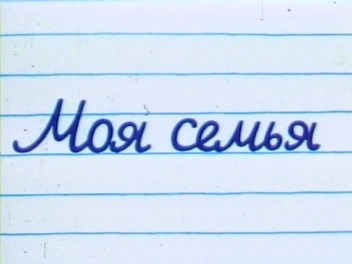 Моя семья